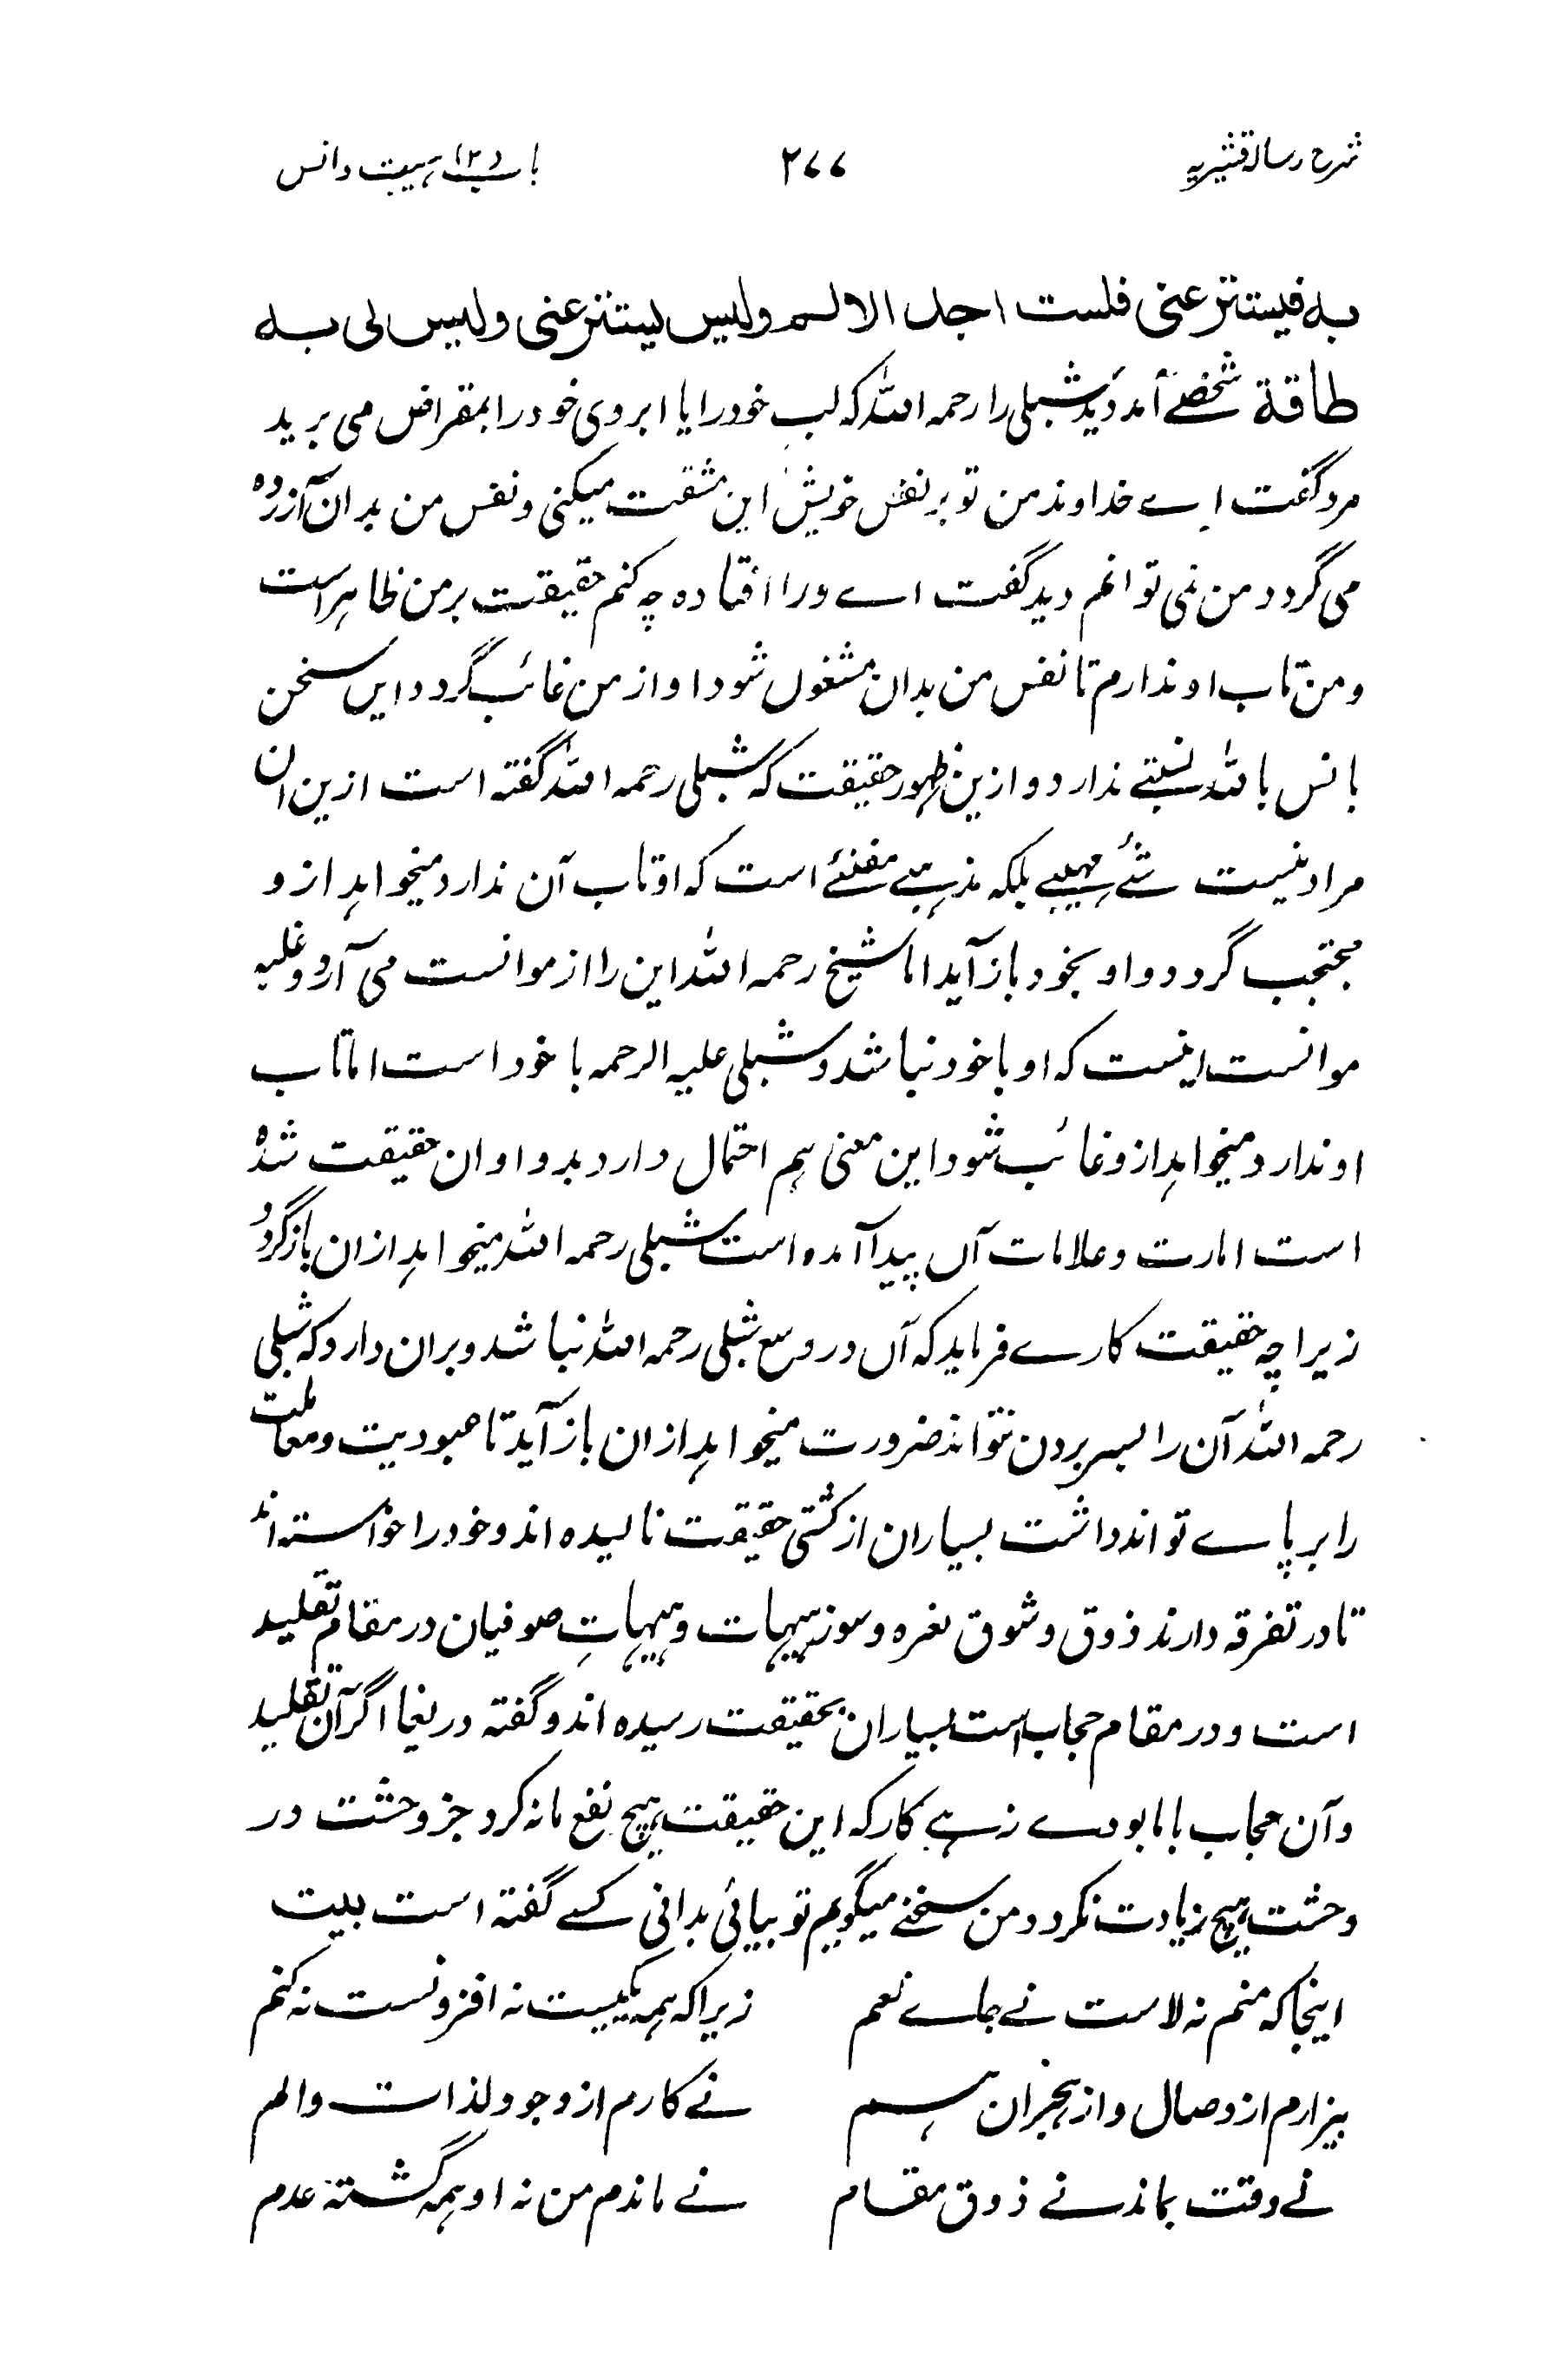 شرح رسالہ قشیریہ ۲۷۷ باب (۱۲) ہیبت و انس
به فیستتر عنی فلست اجد الالم ولیس لیستتر عنی ولیس لی به
طاقة شخصے آمد دید شبلی را رحمہ اللہ کہ لب خود را یا ابروی خود را بمقراض می برید
مرد گفت اے خداوند من تو بر نفس خویش این مشقت میکنی و نفس من بدان آزردہ
می گردد من نمی توانم دید گفت اے ورا افتادہ چہ کنم حقیقت بر من ظاہر است
و من تاب او ندارم تا نفس من بدان مشغول شود او از من غائب گردد ایں سخن
با نس باللہ نسبتے ندارد و ازین ظہور حقیقت کہ شبلی رحمہ اللہ گفتہ است ازین ان
مراد نیست شئے مہیبے بلکہ مفنئے است کہ او تاب آن ندارد میخواہد ازو
محتجب گردد و او بخود باز آید اما شیخ رحمہ اللہ این را از موانست می آرد و غلبہ
موانست اینست کہ او با خود نباشد و شبلی علیہ الرحمہ با خود است اما تاب
او ندارد میخواہد ازو غائب شود این معنی ہم احتمال دارد بدو او ان حقیقت شدہ
است امارت و علامات آں پیدا آمدہ است شبلی رحمہ اللہ میخواہد ازان باز گردد
زیراچہ حقیقت کارے فرماید کہ آں در وسع شبلی رحمہ اللہ نباشد و بران دارد کہ شبلی
رحمہ اللہ آن را بسر بردن نتواند ضرورت میخواہد ازان باز آید تا عبودیت و معاملت
را بر پاے تواند داشت بسیاران از کشتی حقیقت نالیدہ اند و خود را خواستہ اند
تا در تفرقہ دارند ذوق و شوق نعرہ و سوز ہیہات و ہیہاتِ صوفیان در مقام تقلید
است و در مقام حجاب است بسیاران بحقیقت رسیدہ اند و گفتہ دریغا اگر آن تقلید
و آن حجاب با ما بودے زہے کار کہ این حقیقت ہیچ نفع ما نہ کرد جز وحشت در
وحشت ہیچ زیادت نکرد و من سخنے میگویم تو بیائی بدانی کسے گفتہ است بیت
اینجا کہ منم نہ لاست نے جاے نعم زیرا کہ ہمہ یکیست نہ افزونست نہ کنم
بیزارم از وصال و از ہجران ہم نے کارم از وجود لذات و الم
نے وقت بماند نے ذوق مقام نے ماندم من نہ او ہمہ گشتہ عدم